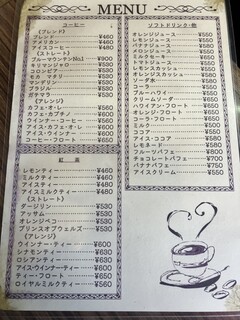 MENU
コーヒー
(ブレンド)
ブレンド ¥480
アメリカン ¥480
アイスコーヒー ¥480
(ストレート)
ブルーマウンテンNo.1 ¥900
キリマンジャロ ¥530
コロンビア ¥530
モカ マタリ ¥530
マンデリン ¥530
ブラジル ¥530
ガテマラ ¥530
(アレンジ)
カフェ・オ・レ ¥560
カフェ・カプチーノ ¥600
ウインナー・コーヒー ¥600
アイス・カフェ・オ・レ ¥560
アイス・ウインナー ¥600
コーヒー・フロート ¥650
紅 茶
レモンティー ¥460
ミルクティー ¥460
アイスティー ¥460
アイスミルクティー ¥460
(ストレート)
ダージリン ¥530
アッサム ¥530
オレンジペコ ¥530
プリンスオブウェルズ ¥530
(アレンジ)
ウインナー・ティー ¥600
シナモンティー ¥600
ロシアンティー ¥600
アイス・ウインナー・ティー ¥600
ティー・フロート ¥650
ロイヤルミルクティー ¥560
ソフトドリンク・他
オレンジジュース ¥550
レモンジュース ¥550
バナナジュース ¥550
メロンジュース ¥550
ミルクセーキ ¥550
トマトジュース ¥550
レモンスカッシュ ¥550
オレンジスカッシュ ¥550
ソーダ水 ¥550
コーラ ¥550
ブルーハワイ ¥550
クリームソーダ ¥650
ハワイアン・フロート ¥650
オレンジ・フロート ¥650
コーラ・フロート ¥650
ミルク ¥500
ココア ¥550
アイス・ココア ¥550
レモネード ¥550
フルーツパフェ ¥800
チョコレートパフェ ¥700
バナナパフェ ¥750
アイスクリーム ¥550